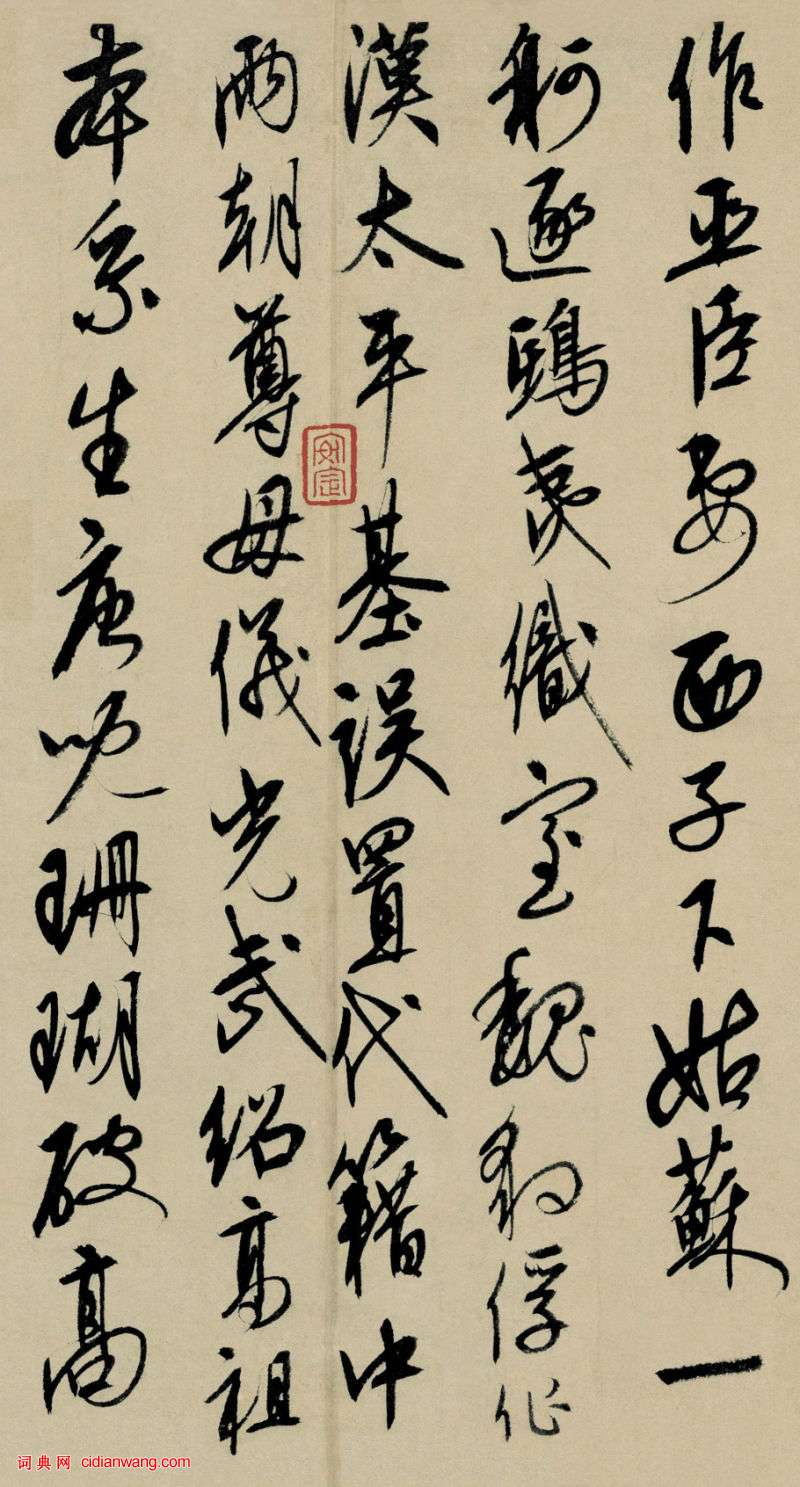 作巫臣妻西子下姑蘇一
舸逐鴟夷織室魏豹俘作
漢太平基誤置代籍中
兩朝尊母儀光武紹高祖
本系生唐兒珊瑚破高
安定
词典网 cidianwang.com